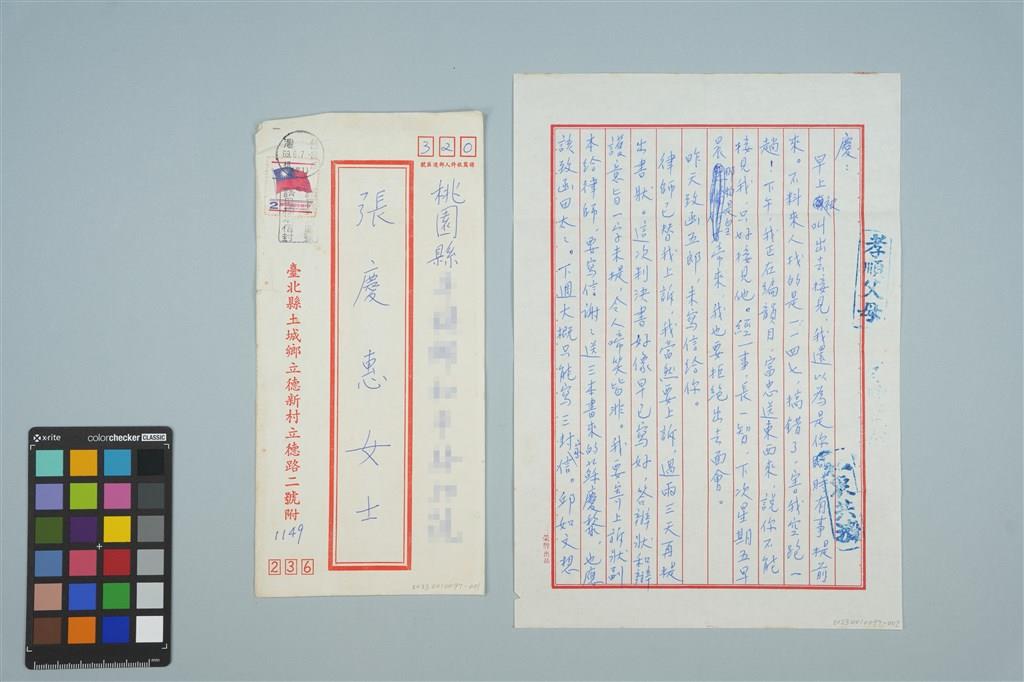 320
請寫收件人郵遞區號
桃園縣
張慶惠女士
臺北縣土城鄉立德新村立德路二號附
1149
236
2
慶:
早上被叫出去接見,我還以為是你臨時有事提前
來。不料來人找的是一一四七,搞錯了,害我空跑一
趟!下午,我正在編韻目,富忠送東西來,說你不能
接見我,只好接見他。經一事,長一智,下次星期五早
晨
帶來,我也要拒絕出去面會。
昨天致函五郎,未寫信給你。
律師已替我上訴,我當然要上訴,過兩三天再提
出書狀。這次判決書好像早已寫好,答辯狀和辯
護意旨一字未提,令人啼笑皆非。我要寄上訴狀副
本給律師,要寫信謝謝送三本書來的蘇慶黎,也應
該致函田太太。下週大概只能寫三封家信。邱如文想
孝順父母
榮興出品
x-rite
colorchecker CLASSIC
mm